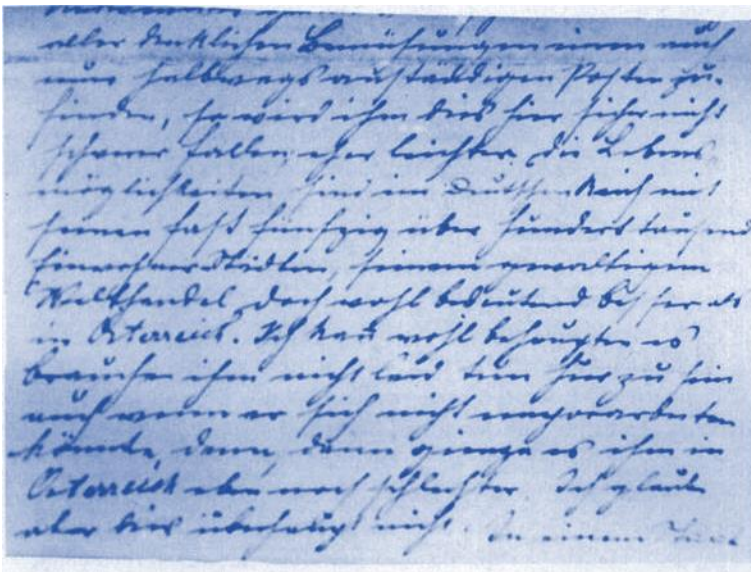 aller denklichen Bemühungen einen auch
nur halbwegs anständigen Posten zu
finden, so wird ihm dies hier sicher nicht
schwerer fallen, eher leichter. Die Lebens
möglichkeiten sind im Deutschen Reich mit
seinen fast fünfzig über hundert tausend
Einwohner Städten, seinem gewaltigen
Welthandel doch wohl bedeutend besser als
in Österreich. Ich kann wohl behaupten es
brauche ihm nicht leid tun hier zu sein
auch wenn er sich nicht emporarbeiten
könnte, denn, dann gienge es ihm in
Österreich eben noch schlechter. Ich glaube
aber dies überhaupt nicht. In einem